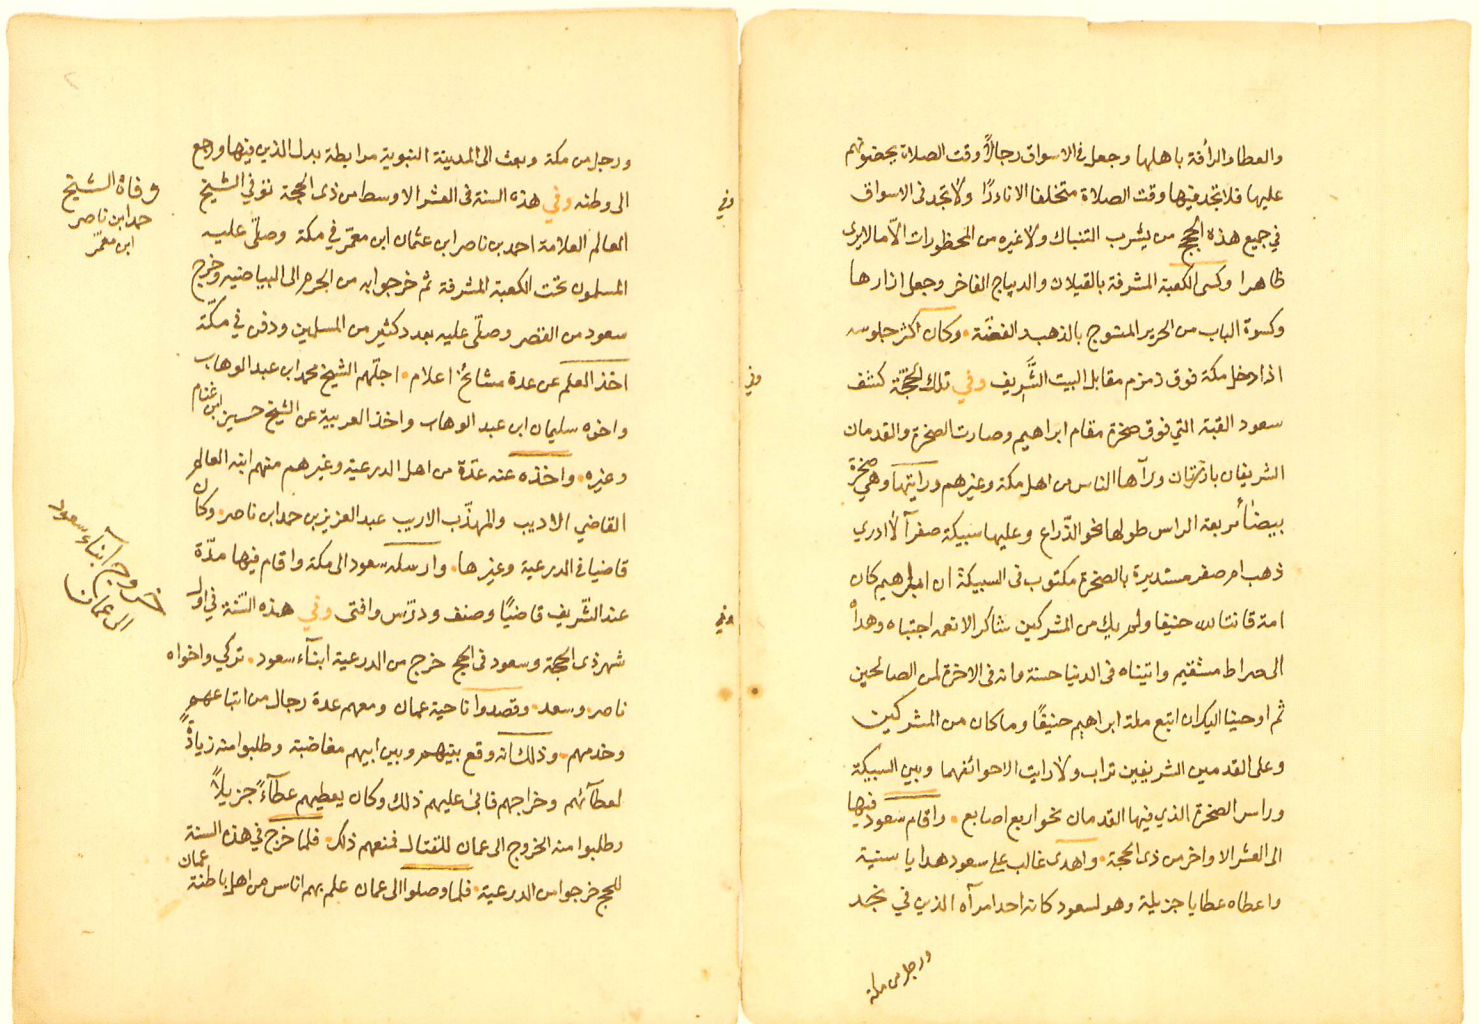 والعطا والرأفة باهلها وجعل في الاسواق رجالاً وقت الصلاة يحضونهم
عليها فلا تجد فيها وقت الصلاة متخلفا الا نادرًا ولا تجد في الاسواق
في جميع هذه الحجج من يشرب التنباك ولا غيره من المحظورات الا ما لا يرى
ظاهرا وكسى الكعبة المشرفة بالقيلان والديباج الفاخر وجعل ازارها
وكسوة الباب من الحرير المنسوج بالذهب والفضّة وكان اكثر جلوسه
اذا دخل مكة فوق زمزم مقابل البيت الشَّريف وفي تلك الحجّة كشف
سعود القبة التي فوق صخرة مقام ابراهيم وصارت الصخرة والقدمان
الشريفان بارزتان ورآها الناس من اهل مكة وغيرهم ورايتها وهي صخرة
بيضاً مربعة الراس طولها نحو الذّراع وعليها سبيكة صفرآ لا ادري
ذهب ام صفر مستديرة بالصخرة مكتوب في السبيكة ان ابراهيم كان
امة قانتا لله حنيفا ولم يك من المشركين شاكرا لانعمه اجتباه وهداه
الى صراط مستقيم واتيناه في الدنيا حسنة وانه في الاخرة لمن الصالحين
ثم اوحينا اليك ان اتبع ملة ابراهيم حنيفًا وما كان من المشركين
وعلى القدمين الشريفين تراب ولا رايت الا حوافهما وبين السبيكة
وراس الصخرة الذي فيها القدمان نحو اربع اصابع واقام سعود فيها
الى العشر الاواخر من ذي الحجة واهدى غالب على سعود هدايا سنية
واعطاه عطايا جزيلة وهو لسعود كانه احد امرآه الذين في نجد
ورجل من مكة
وفي
وفي
وفي
ورحل من مكة وبعث الى المدينة النبوية مرابطة بدل الذين فيها ورجع
الى وطنه وفي هذه السنة في العشر الاوسط من ذي الحجة توفي الشيخ
العالم العلامة احمد بن ناصر ابن عثمان ابن معمّر في مكة وصلّى عليه
المسلمون تحت الكعبة المشرفة ثم خرجوا به من الحرم الى البياضيه وخرج
سعود من القصر وصلّى عليه بعدد كثير من المسلمين ودفن في مكّة
اخذ العلم عن عدة مشائخ اعلام اجلّهم الشيخ محمد ابن عبد الوهاب
واخوه سليمان ابن عبد الوهاب واخذ العربية عن الشيخ حسين ابن غنام
وغيره واخذه عنه عدّة من اهل الدرعية وغيرهم منهم ابنه العالم
القاضي الاديب والمهذّب الاريب عبد العزيز بن حمد ابن ناصر وكان
قاضيا في الدرعية وغيرها وارسله سعود الى مكة واقام فيها مدّة
عند الشّريف قاضيًا وصنف ودرّس وافتى وفي هذه السّنة في اول
شهر ذي الحجة وسعود في الحج خرج من الدرعية ابنآء سعود تركي واخواه
ناصر وسعد وقصدوا ناحية عمان ومعهم عدة رجال من اتباعهم
وخدمهم وذلك انه وقع بينهم وبين ابيهم مغاضبة وطلبوا منه زيادةً
لعطآئهم وخراجهم فابى عليهم ذلك وكان يعطيهم عطآءً جزيلاً
وطلبوا منه الخروج الى عمان للقتال فمنعهم ذلك فلما خرج في هذه السنة
للحج خرجوا من الدرعية فلما وصلوا الى عمان علم بهم اناس من اهل باطنة عمان
وفاة الشيخ
حمد ابن ناصر
ابن معمّر
خروج ابنآء سعود
الى عمان